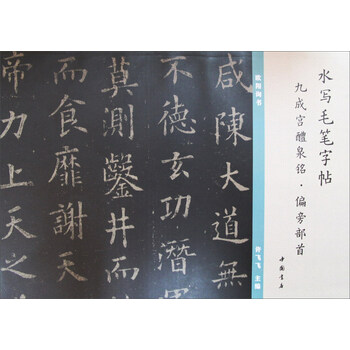 水写毛笔字帖
九成宫醴泉铭·偏旁部首
中国书店
欧阳询书
主编
咸陳大道無
不德玄功潛
莫測鑿井而
而食靡謝天
帝力上天之